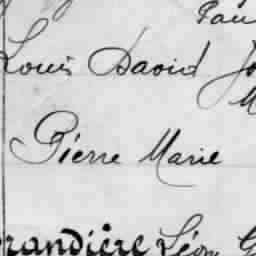 Pau
Louis David Jo
M
Pierre Marie
randière Léon G